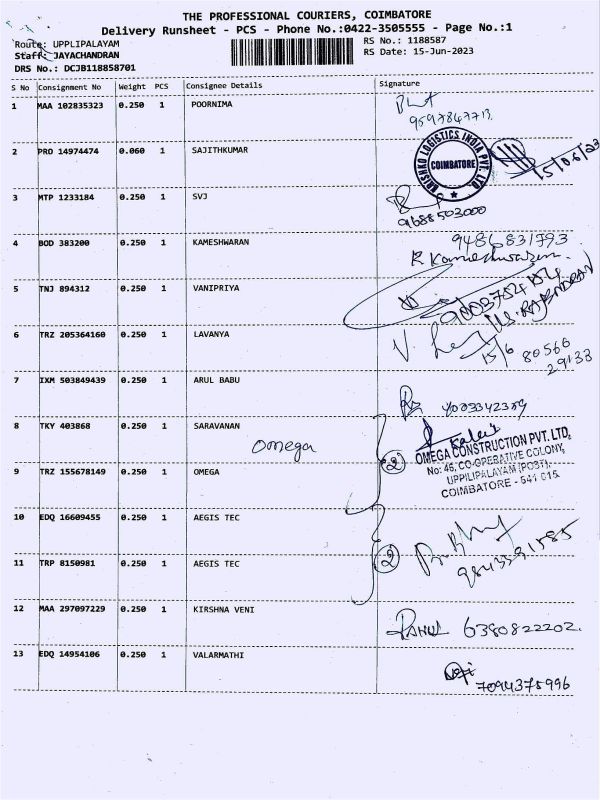 THE PROFESSIONAL COURIERS, COIMBATORE
Delivery Runsheet - PCS - Phone No.:0422-3505555 - Page No.:1
Route: UPPLIPALAYAM RS No.: 1188587
Staff: JAYACHANDRAN RS Date: 15-Jun-2023
DRS No.: DCJB118858701
S No Consignment No Weight PCS Consignee Details Signature
1 MAA 102835323 0.250 1 POORNIMA
9597847713
2 PRO 14974474 0.060 1 SAJITHKUMAR
KRISHKO LOGISTICS INDIA PVT. LTD
COIMBATORE
15/06/23
3 MTP 1233184 0.250 1 SVJ
9688503000
4 BOD 383200 0.250 1 KAMESHWARAN
9486831793
R Kameshwaran.
5 TNJ 894312 0.250 1 VANIPRIYA
RAJENDRAN
6 TRZ 205364160 0.250 1 LAVANYA
15/6 80566
29133
7 IXM 503849439 0.250 1 ARUL BABU
8 TKY 403868 0.250 1 SARAVANAN
Omega
2
OMEGA CONSTRUCTION PVT. LTD,
No: 45, CO-OPERATIVE COLONY,
UPPILIPALAYAM (POST),
COIMBATORE - 641 015.
9 TRZ 155678149 0.250 1 OMEGA
10 EDQ 16609455 0.250 1 AEGIS TEC
2
9843391585
11 TRP 8150981 0.250 1 AEGIS TEC
12 MAA 297097229 0.250 1 KIRSHNA VENI
RAHUL 6380822202.
13 EDQ 14954106 0.250 1 VALARMATHI
7094375996